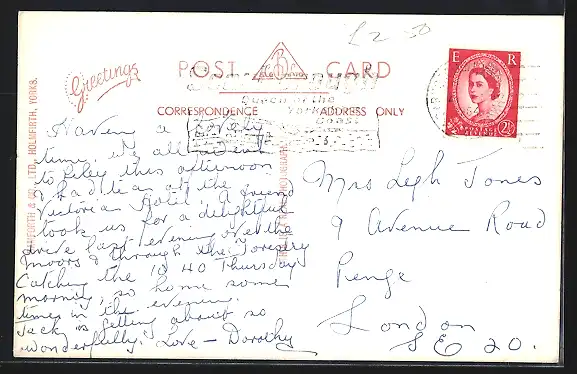 £2-50
Greetings
POST CARD
E R
2½
CORRESPONDENCE ADDRESS ONLY
Queen of the
Yorkshire
Coast
BAMFORTH & CO., LTD., HOLMFIRTH, YORKS.
Having a lovely
time, we all
to Filey this afternoon
& had tea at the
Victorian Hotel. A friend
took us for a delightful
drive last evening over the
moors & through the Forestry
Catching the 10 40 Thursday
morning, so home some
time in the evening.
Jack is getting about so
wonderfully. Love - Dorothy
Mrs Leigh Jones
9 Avenue Road
Penge
London
SE 20.